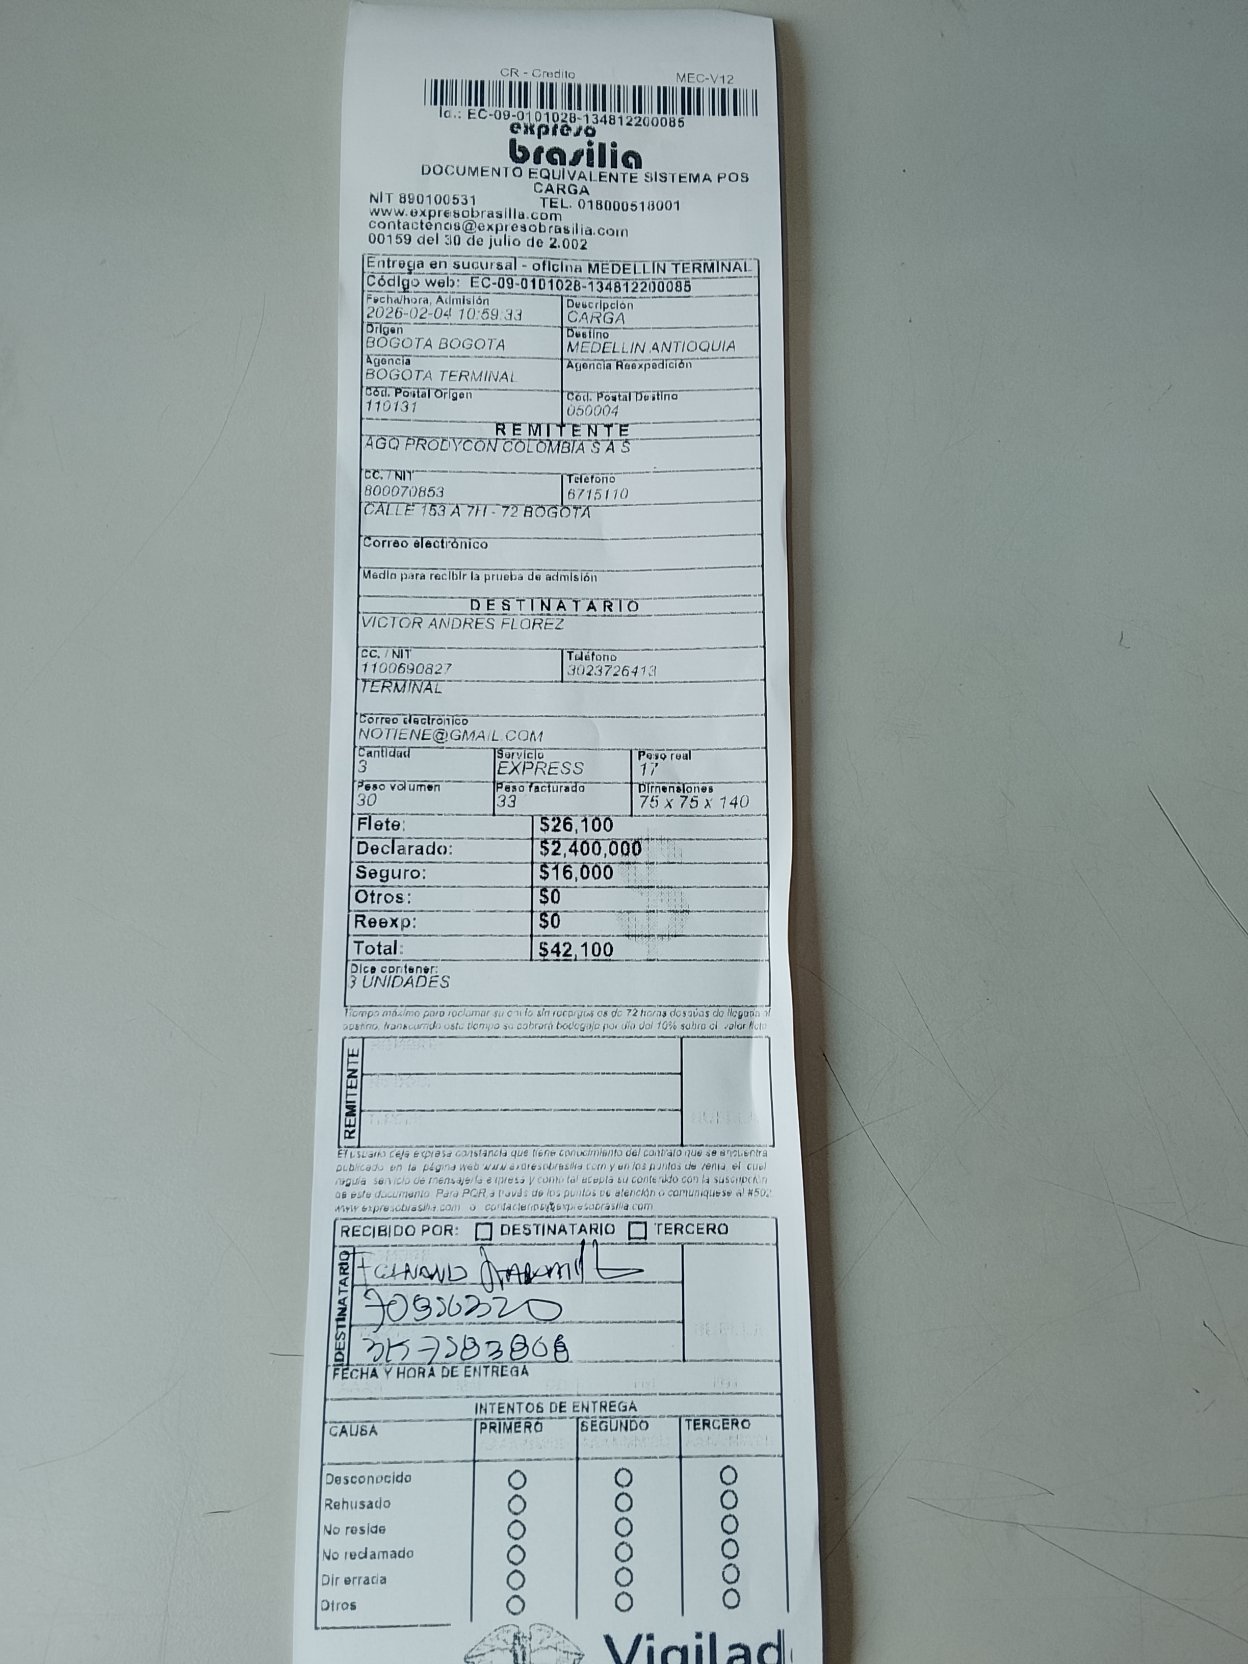 CR - Credito MEC-V12
Id.: EC-09-0101028-134812200085
expreso
brasilia
DOCUMENTO EQUIVALENTE SISTEMA POS
CARGA
NIT 890100531 TEL. 018000518001
www.expresobrasilia.com
contactenos@expresobrasilia.com
00159 del 30 de julio de 2.002
Entrega en sucursal - oficina MEDELLIN TERMINAL
Código web: EC-09-0101028-134812200085
Fecha/hora, Admisión Descripción
2026-02-04 10:59:33 CARGA
Origen Destino
BOGOTA BOGOTA MEDELLIN ANTIOQUIA
Agencia Agencia Reexpedición
BOGOTA TERMINAL
Cód. Postal Origen Cód. Postal Destino
110131 050004
REMITENTE
AGQ PRODYCON COLOMBIA S A S
CC. / NIT Teléfono
800070853 6715110
CALLE 153 A 7H - 72 BOGOTA
Correo electrónico
Medio para recibir la prueba de admisión
DESTINATARIO
VICTOR ANDRES FLOREZ
CC. / NIT Teléfono
1100690827 3023726413
TERMINAL
Correo electronico
NOTIENE@GMAIL.COM
Cantidad Servicio Peso real
3 EXPRESS 17
Peso volumen Peso facturado Dimensiones
30 33 75 x 75 x 140
Flete: $26,100
Declarado: $2,400,000
Seguro: $16,000
Otros: $0
Reexp: $0
Total: $42,100
Dice contener:
3 UNIDADES
Tiempo máximo para reclamar su envío sin recargos es de 72 horas después de llegada al
destino, transcurrido este tiempo se cobrará bodegaje por día del 10% sobre el valor flete
REMITENTE
El usuario deja expresa constancia que tiene conocimiento del contrato que se encuentra
publicado en la página web www.expresobrasilia.com y en los puntos de venta, el cual
regula servicio de mensajería expresa y como tal acepta su contenido con la suscripción
de este documento. Para PQR a través de los puntos de atención o comuniquese al #502
www.expresobrasilia.com o contactenos@expresobrasilia.com
RECIBIDO POR: DESTINATARIO TERCERO
DESTINATARIO
FECHA Y HORA DE ENTREGA
INTENTOS DE ENTREGA
CAUSA PRIMERO SEGUNDO TERCERO
Desconocido
Rehusado
No reside
No reclamado
Dir errada
Otros